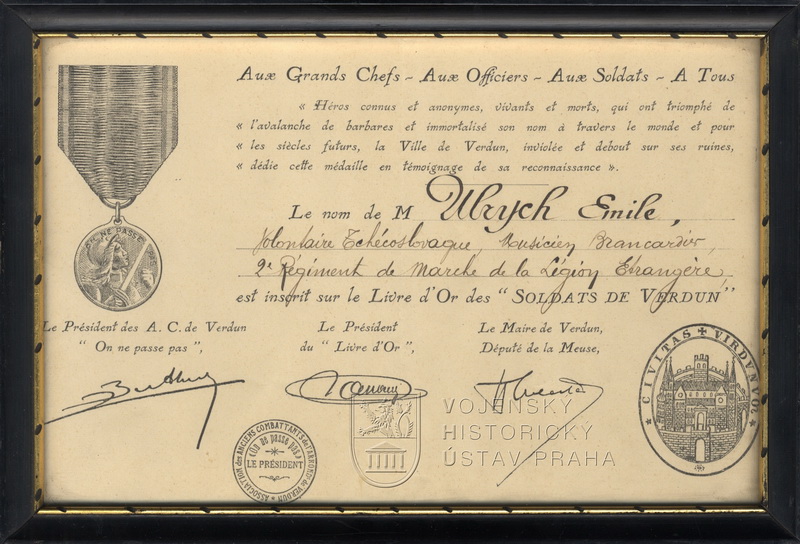 Aux Grands Chefs - Aux Officiers - Aux Soldats - A Tous
« Héros connus et anonymes, vivants et morts, qui ont triomphé de
« l'avalanche de barbares et immortalisé son nom à travers le monde et pour
« les siècles futurs, la Ville de Verdun, inviolée et debout sur ses ruines,
« dédie cette médaille en témoignage de sa reconnaissance ».
ON NE PASSE PAS
Le nom de M Ulrych Emile,
Volontaire Tchécoslovaque, Musicien Brancardier,
2e Régiment de Marche de la Légion Etrangère,
est inscrit sur le Livre d'Or des "SOLDATS DE VERDUN"
Le Président des A. C. de Verdun
" On ne passe pas ",
Le Président
du " Livre d'Or ",
Le Maire de Verdun,
Député de la Meuse,
CIVITAS VIRDVNVO
ASSOCIATION des ANCIENS COMBATTANTS de l'ARRONDt de VERDUN
« On ne passe pas »
LE PRÉSIDENT
VOJENSKÝ
HISTORICKÝ
ÚSTAV PRAHA